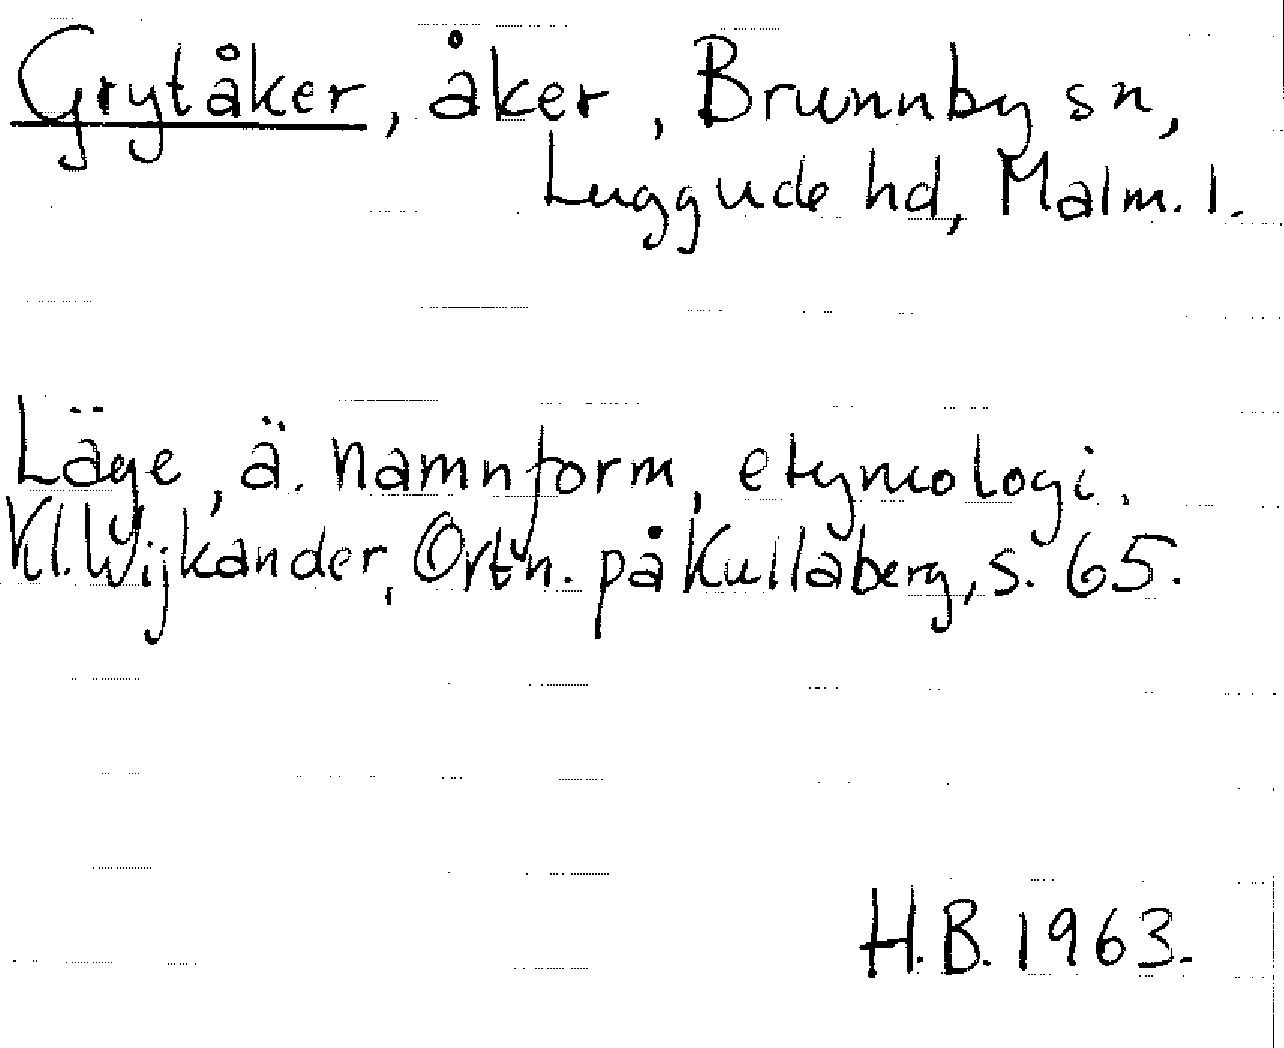 Grytåker, åker, Brunnby sn,
Luggude hd, Malm. l.
Läge, ä. namnform, etymologi.
Kl. Wijkander, Ortn. på Kullaberg, s. 65.
H.B. 1963.